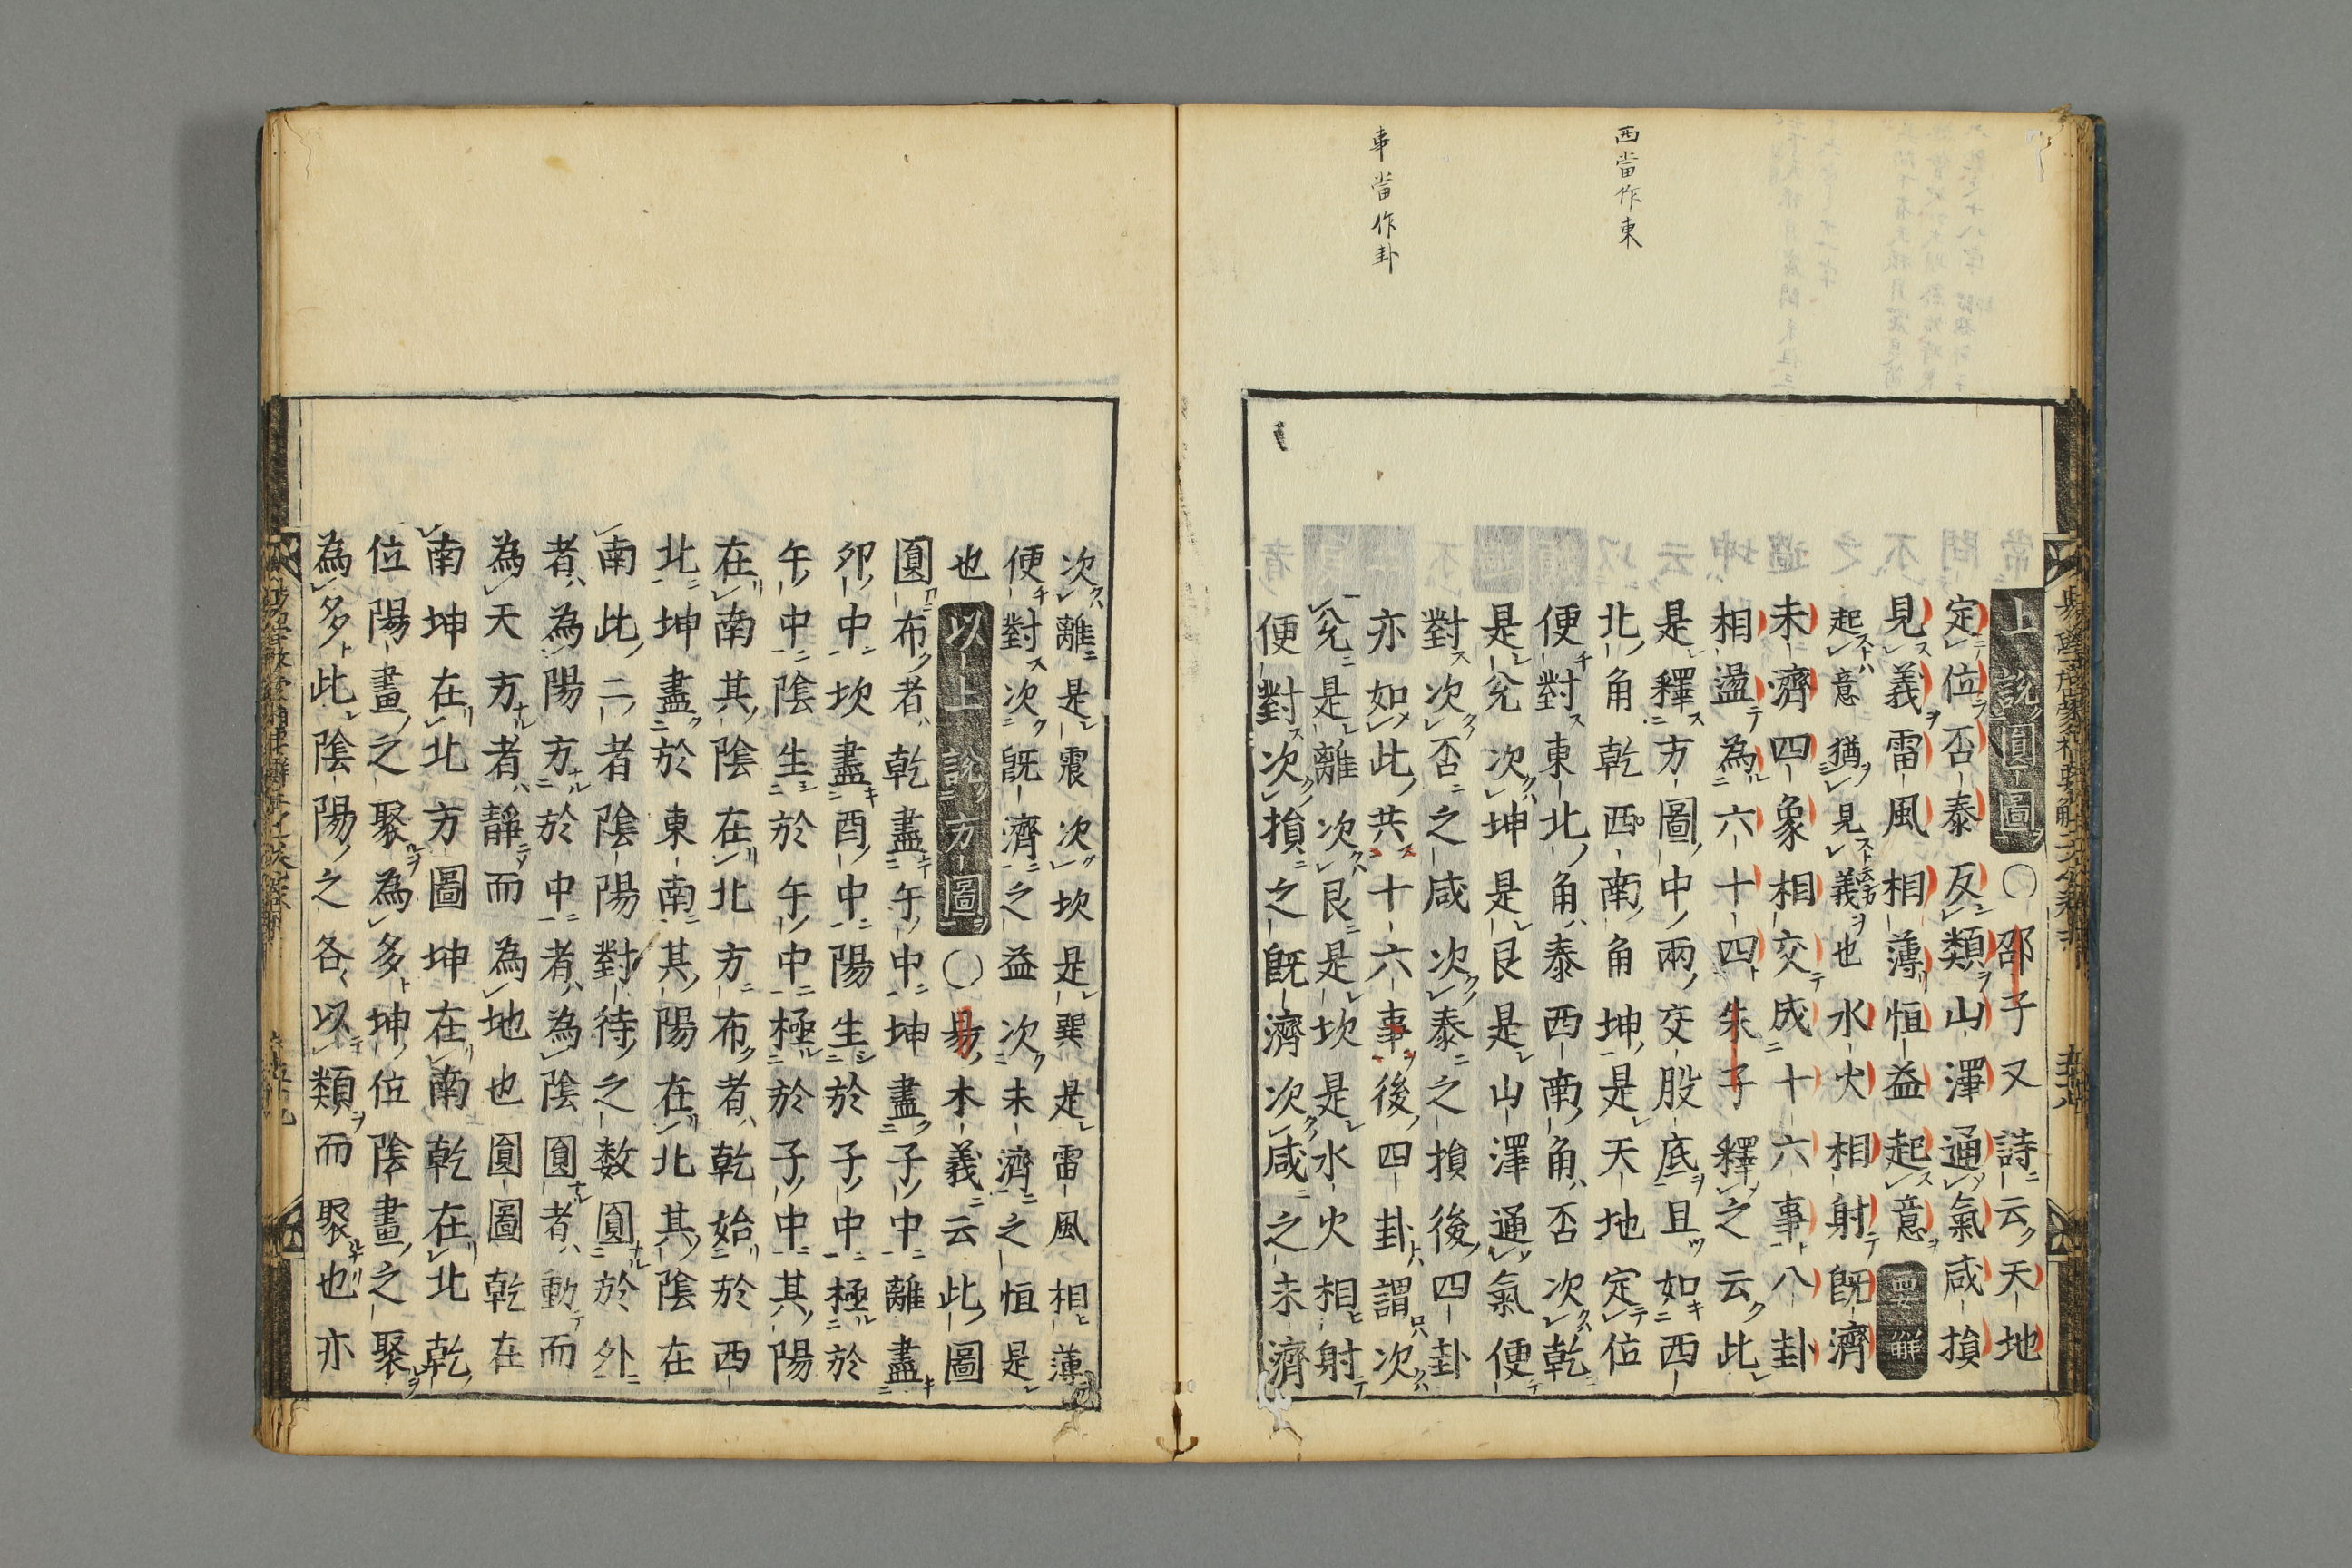 西當作東
事當作卦
上說圓圖〇邵子又詩云天地
定位否泰反類山澤通氣咸損
見義雷風相薄恒益起意要解
起意猶見義也水火相射既濟
未濟四象相交成十六事八卦
相盪為六十四朱子釋之云此
是釋方圖中兩交股底且如西
北角乾西南角坤是天地定位
便對東北角泰西南角否次乾
是兌次坤是艮是山澤通氣便
對次否之咸次泰之損後四卦
亦如此共十六事後四卦謂次
兌是離次艮是坎是水火相射
便對次損之既濟次咸之未濟
次離是震次坎是巽是雷風相薄
便對次既濟之益次未濟之恒是
也以上說方圖〇易本義云此圖
圓布者乾盡午中坤盡子中離盡
卯中坎盡酉中陽生於子中極於
午中陰生於午中極於子中其陽
在南其陰在北方布者乾始於西
北坤盡於東南其陽在北其陰在
南此二者陰陽對待之数圓於外
者為陽方於中者為陰圓者動而
為天方者靜而為地也圓圖乾在
南坤在北方圖坤在南乾在北乾
位陽畫之聚為多坤位陰畫之聚
為多此陰陽之各以類而聚也亦